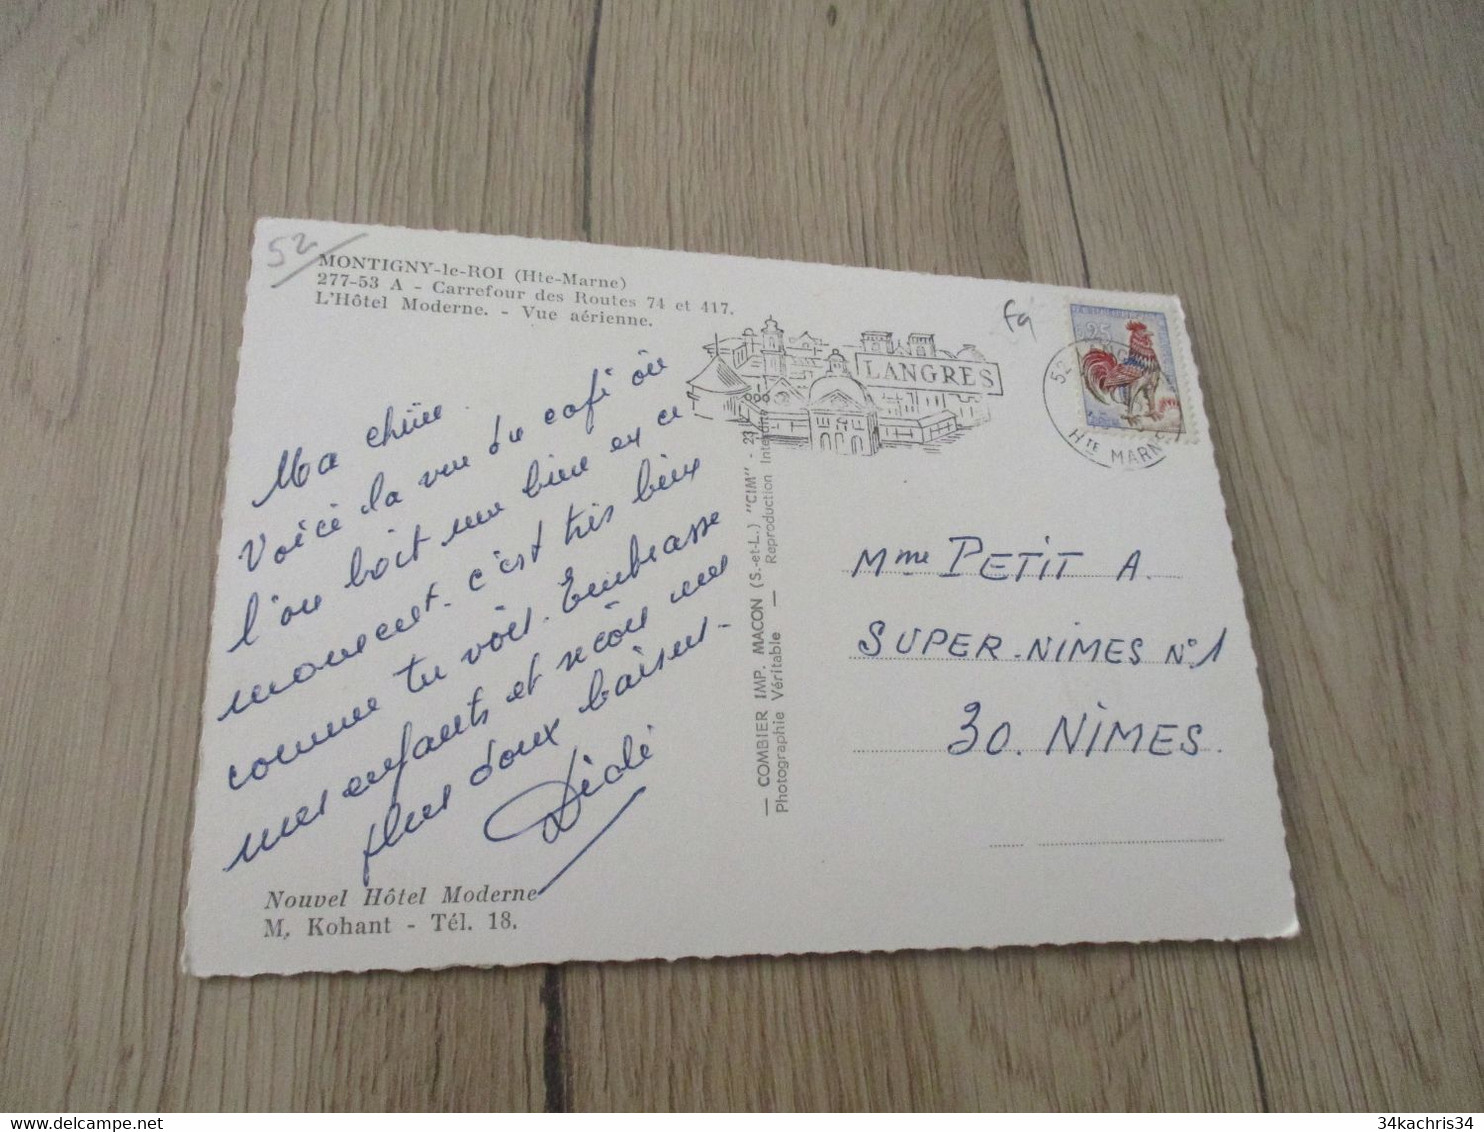 52
MONTIGNY-le-ROI (Hte-Marne)
277-53 A - Carrefour des Routes 74 et 417.
L'Hôtel Moderne. - Vue aérienne.
Ma chérie
Voici la vue du café où
l'on boit une bière en ce
moment. c'est très bien
comme tu vois. Embrasse
mes enfants et reçois mes
plus doux baisers -
Dédé
Nouvel Hôtel Moderne
M. Kohant - Tél. 18.
— COMBIER IMP. MACON (S.-et-L.) "CIM" -
Photographie Véritable — Reproduction Interdite
LANGRES
25
52
Hte MARNE
Mme PETIT A.
SUPER-NIMES N°1
30. NIMES.
34kachris34